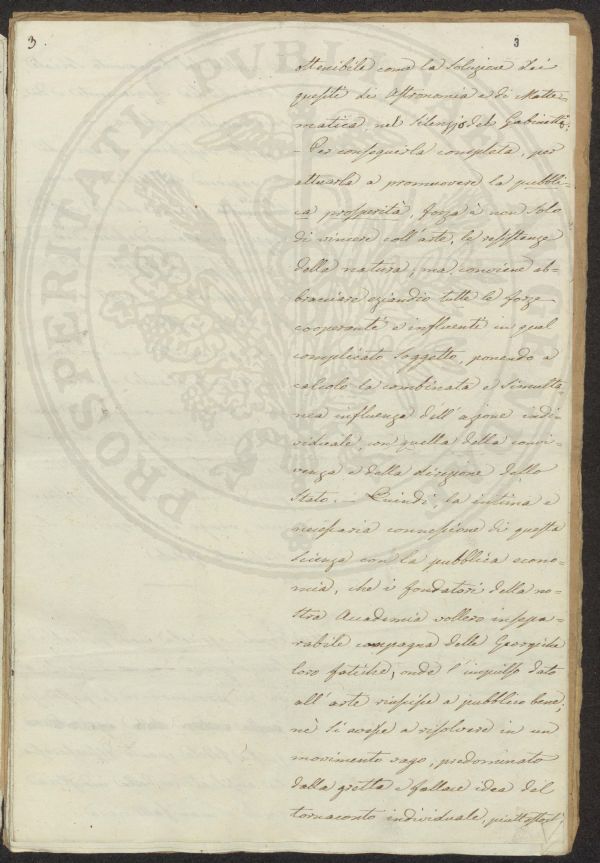 3.
3
ottenibile come la soluzione dei
quesiti di Astronomia e di Matte-
matica, nel silenzio del Gabinetto;
- Per conseguirla completa, per
attuarla a promuovere la pubbli-
ca prosperità, forza è non solo
di vincere coll'arte, le resistenze
della natura; ma conviene ab-
bracciare eziandio tutte le forze
cooperanti e influenti in quel
complicato soggetto, ponendo a
calcolo la combinata e simulta-
nea influenza dell'azione indi-
viduale, con quella della convi-
venza e della direzione dello
Stato. – Quindi la intima e
necessaria connessione di questa
scienza con la pubblica econo-
mia, che i fondatori della no-
stra Accademia vollero insepa-
rabile compagna delle Georgiche
loro fatiche, onde l'impulso dato
all'arte riuscisse a pubblico bene;
nè si avesse a risolvere in un
movimento vago, predominato
dalla gretta e fallace idea del
tornaconto individuale, piuttosto
PROSPERITATI PVBLI